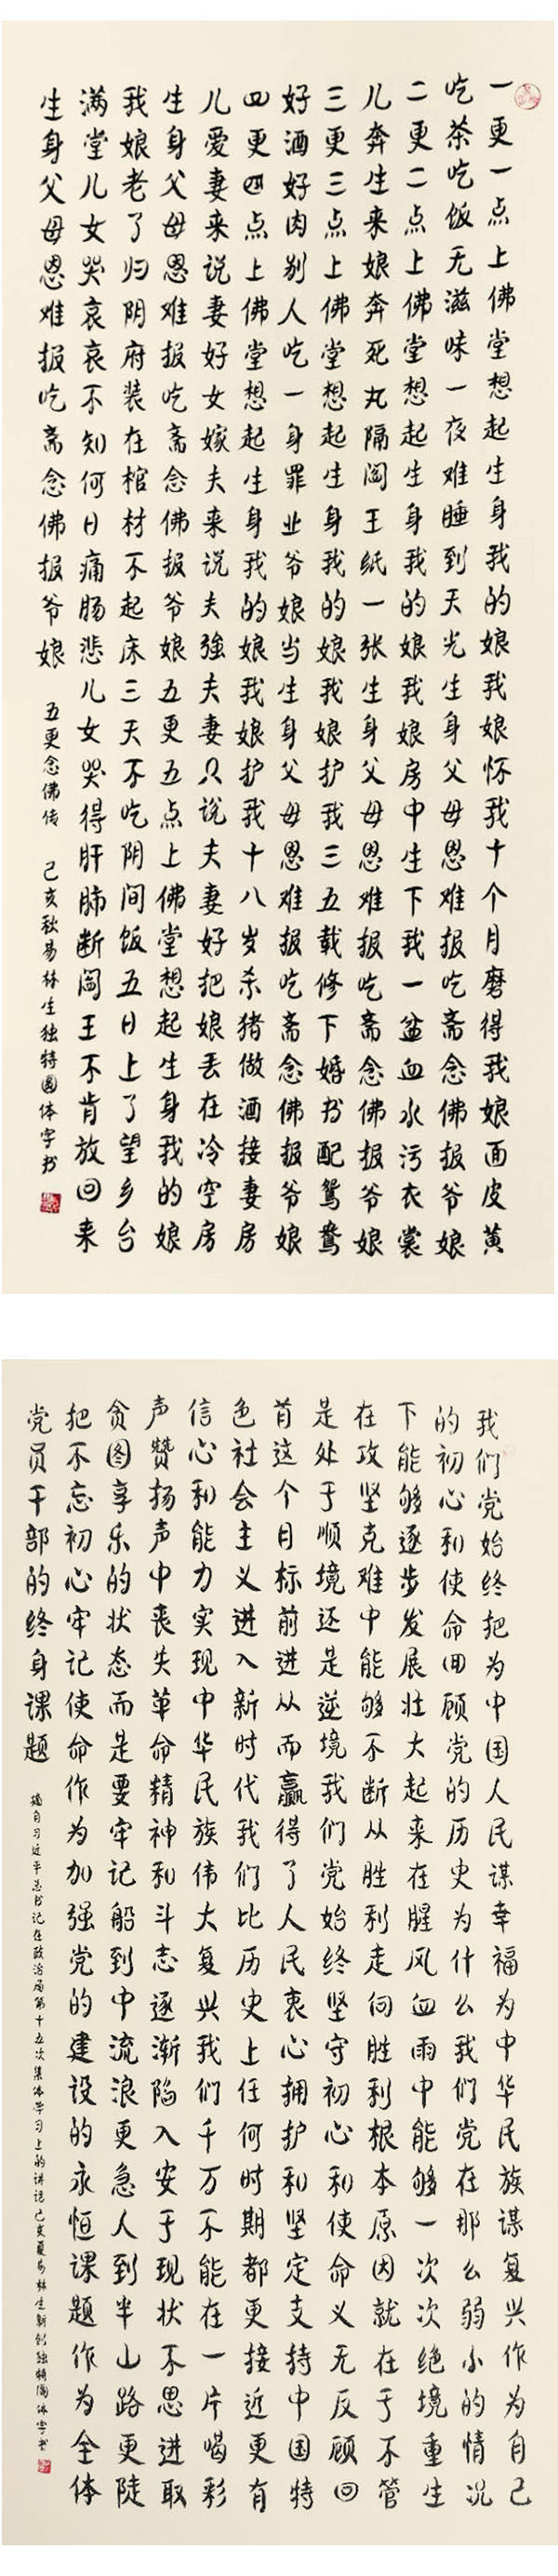 一更一点上佛堂想起生身我的娘我娘怀我十个月磨得我娘面皮黄
吃茶吃饭无滋味一夜难睡到天光生身父母恩难报吃斋念佛报爷娘
二更二点上佛堂想起生身我的娘我娘房中生下我一盆血水污衣裳
儿奔生来娘奔死丸隔阎王纸一张生身父母恩难报吃斋念佛报爷娘
三更三点上佛堂想起生身我的娘我娘护我三五载修下婚书配鸳鸯
好酒好肉别人吃一身罪业爷娘当生身父母恩难报吃斋念佛报爷娘
四更四点上佛堂想起生身我的娘我娘护我十八岁杀猪做酒接妻房
儿爱妻来说妻好女嫁夫来说夫強夫妻只说夫妻好把娘丢在冷空房
生身父母恩难报吃斋念佛报爷娘五更五点上佛堂想起生身我的娘
我娘老了归阴府装在棺材不起床三天不吃阴间饭五日上了望乡台
满堂儿女哭哀哀不知何日痛肠悲儿女哭得肝肺断阎王不肯放回来
生身父母恩难报吃斋念佛报爷娘
五更念佛传 己亥秋易林生独特圆体字书
我们党始终把为中国人民谋幸福为中华民族谋复兴作为自己
的初心和使命回顾党的历史为什么我们党在那么弱小的情况
下能够逐步发展壮大起来在腥风血雨中能够一次次绝境重生
在攻坚克难中能够不断从胜利走向胜利根本原因就在于不管
是处于顺境还是逆境我们党始终坚守初心和使命义无反顾向
首这个目标前进从而赢得了人民衷心拥护和坚定支持中国特
色社会主义进入新时代我们比历史上任何时期都更接近更有
信心和能力实现中华民族伟大复兴我们千万不能在一片喝彩
声赞扬声中丧失革命精神和斗志逐渐陷入安于现状不思进取
贪图享乐的状态而是要牢记船到中流浪更急人到半山路更陡
把不忘初心牢记使命作为加强党的建设的永恒课题作为全体
党员干部的终身课题
摘自习近平总书记在政治局第十五次集体学习上的讲话己亥夏易林生新创独特圆体字书